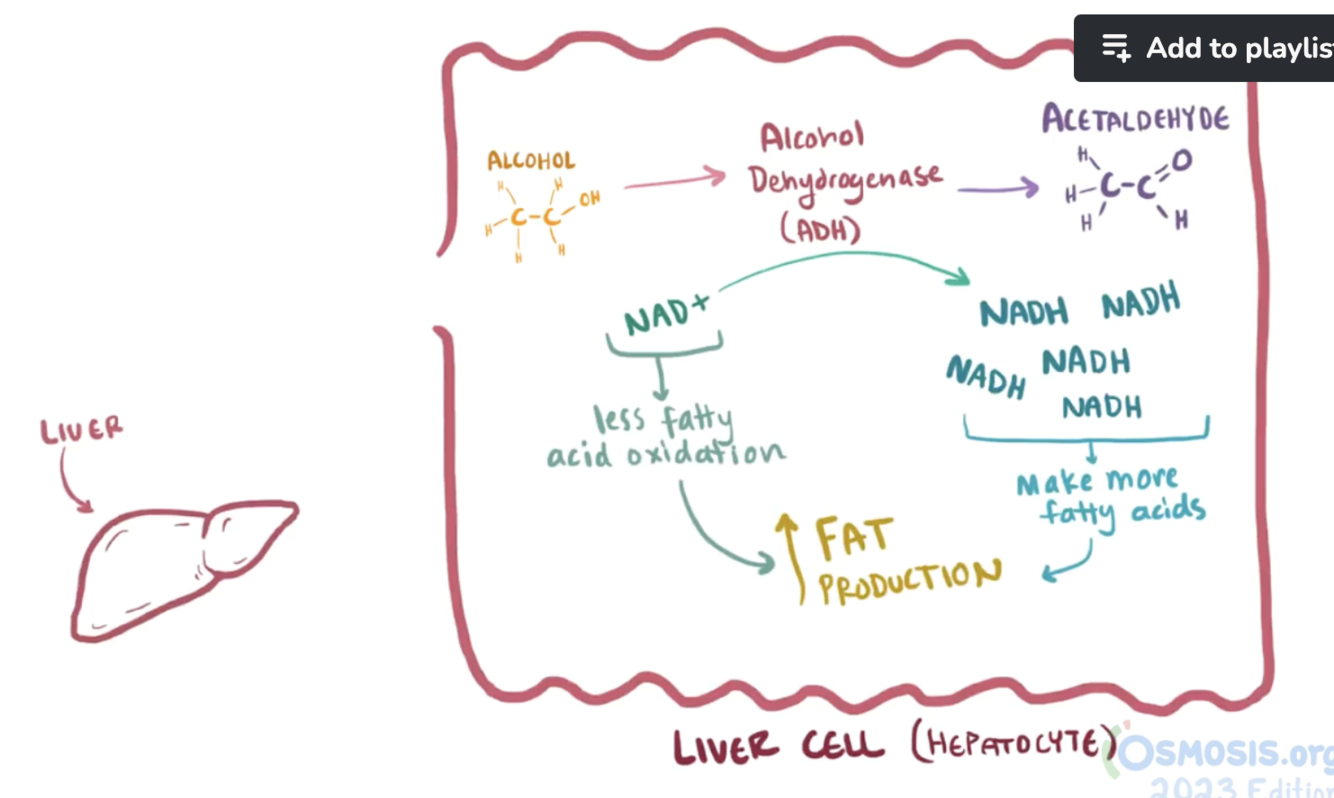 Add to playlis
ALCOHOL
H H
C-C-OH
H H H
Alcohol
Dehydrogenase
(ADH)
ACETALDEHYDE
H O
H-C-C
H H
NAD+
NADH NADH
NADH NADH
NADH
less fatty
acid oxidation
Make more
fatty acids
FAT
PRODUCTION
LIVER
LIVER CELL (HEPATOCYTE)
OSMOSIS.org
2023 Edition